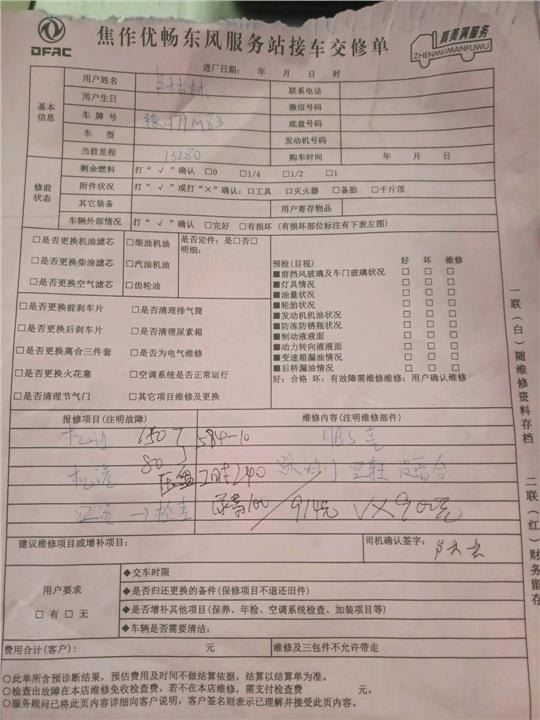 DFAC
焦作优畅东风服务站接车交修单
真美满服务
ZHENMEIMANFUWU
进厂日期: 年 月 日 时
基本信息
用户姓名 联系电话
用户生日 微信号码
车 牌 号 底盘号码
车 型 发动机号码
当前里程 13280 购车时间 年 月 日
修前状态
剩余燃料 打“√”确认 □0 □1/4 □1/2 □1
附件状况 打“√”或打“×”确认: □工具 □灭火器 □备胎 □千斤顶
其它装备 用户寄存物品
车辆外部情况 打“√”确认 □完好 □有损坏 (有损坏部位标注有下表左图)
□是否更换机油滤芯 □柴油机油 是否定件: 是□否□
明细:
□是否更换柴油滤芯 □汽油机油
□是否更换空气滤芯 □齿轮油
预检(目视) 好 坏 维修
■前挡风玻璃及车门玻璃状况 □ □ □
■灯具情况 □ □ □
■油量状况 □ □ □
■轮胎状况 □ □ □
■发动机机油状况 □ □ □
■防冻防锈瓶状况 □ □ □
■制动液液面 □ □ □
■动力转向液液面 □ □ □
■变速箱漏油情况 □ □ □
■后桥漏油情况 □ □ □
好: 合格 坏: 有故障需维修维修: 用户确认维修
□是否更换前刹车片 □是否清理排气筒
□是否更换后刹车片 □是否清理尿素箱
□是否更换离合三件套 □是否为电气维修
□是否更换火花塞 □空调系统是否正常运行
□是否清理节气门 □其它项目维修及更换
报修项目(注明故障) 维修内容(注明维修部件)
650 584-10
80
尿素100 / 914元
建议维修项目或增补项目: 司机确认签字:
用户要求
□有 □无
◆交车时限
◆是否归还更换的备件(保修项目不退还旧件)
◆是否增补其他项目(保养、年检、空调系统检查、加装项目等)
◆车辆是否需要清洁:
费用合计(客户): 元 维修及三包件不允许带走
○此单所含预诊断结果, 预估费用及时间不做结算依据, 结算以结算单为准。
○检查出故障在本店维修免收检查费, 若不在本店维修, 需支付检查费 元。
○服务顾问已将此页内容详细向客户说明, 客户签名则表示已理解并接受此页内容。
一联(白)随维修资料存档
二联(红)财务留存